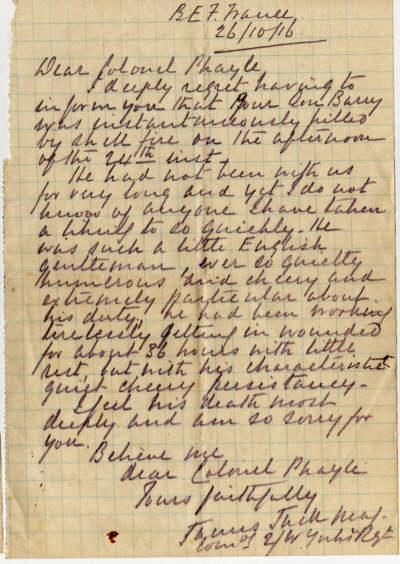 B.E.F. France
26/10/16
Dear Colonel Phayle
I deeply regret having to
inform you that your son Barry
was instantaneously killed
by shell fire on the afternoon
of the 24th inst.
He had not been with us
for very long and yet I do not
know of anyone I have taken
a liking to so quickly. He
was such a little English
gentleman, ever so quietly
humerous and cheery and
extremely particular about
his duty, he had been working
tirelessly getting in wounded
for about 36 hours with little
rest, but with his characteristic
quiet cheery persistancy.
I feel his death most
deeply and am so sorry for
you.
Believe me
Dear Colonel Phayle
Yours faithfully
James Jack Maj.
Comdg 2/W Yorks Regt